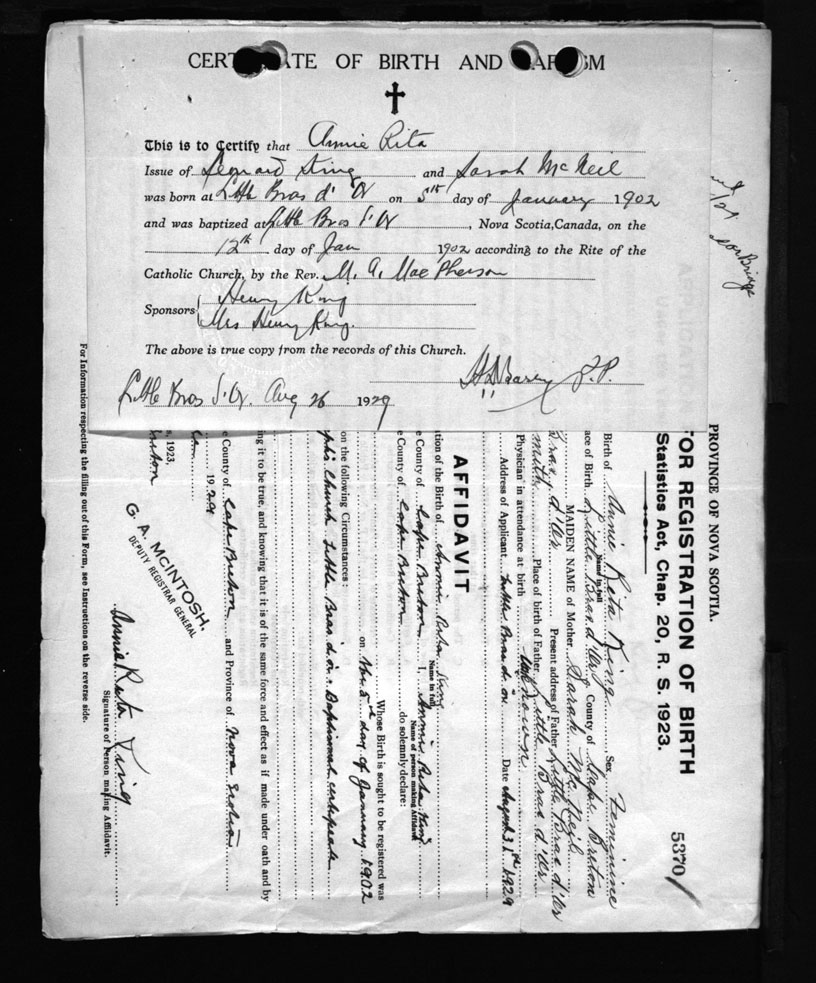 CERTIFICATE OF BIRTH AND BAPTISM
This is to Certify that Annie Rita
Issue of Leonard King and Sarah McNeil
was born at Little Bras d'Or on 5th day of January 1902
and was baptized at Little Bras d'Or, Nova Scotia, Canada, on the
12th day of Jan 1902 according to the Rite of the
Catholic Church, by the Rev. M. A. MacPherson
Sponsors Henry King
Mrs Henry King.
The above is true copy from the records of this Church.
P.P.
Little Bras d'Or. Aug 26 1929
PROVINCE OF NOVA SCOTIA.
FOR REGISTRATION OF BIRTH
Statistics Act, Chap. 20, R. S. 1923.
5370
Birth of Annie Rita King Sex Feminine
Name in full
ace of Birth Little Bras d'Or County of Cape Breton
MAIDEN NAME of Mother Sarah McNeil
Bras d'Or Present address of Father Little Bras d'Or
Place of birth of Father Little Bras d'Or
Physician in attendance at birth unknown
Address of Applicant Little Bras d'or Date August 31st 1929
AFFIDAVIT
tion of the Birth of Annie Rita King
Name in full
e County of Cape Breton I, Annie Rita King
Name of person making Affidavit
e County of Cape Breton do solemnly declare:
Whose Birth is sought to be registered was
on the 5th day of January 1902
on the following Circumstances:
Church Little Bras d'or. Baptismal certificate
ing it to be true, and knowing that it is of the same force and effect as if made under oath and by
e County of Cape Breton and Province of Nova Scotia
1929
, 1923.
G. A. McINTOSH,
DEPUTY REGISTRAR GENERAL
Annie Rita King
Signature of Person making Affidavit.
For Information respecting the filling out of this Form, see Instructions on the reverse side.